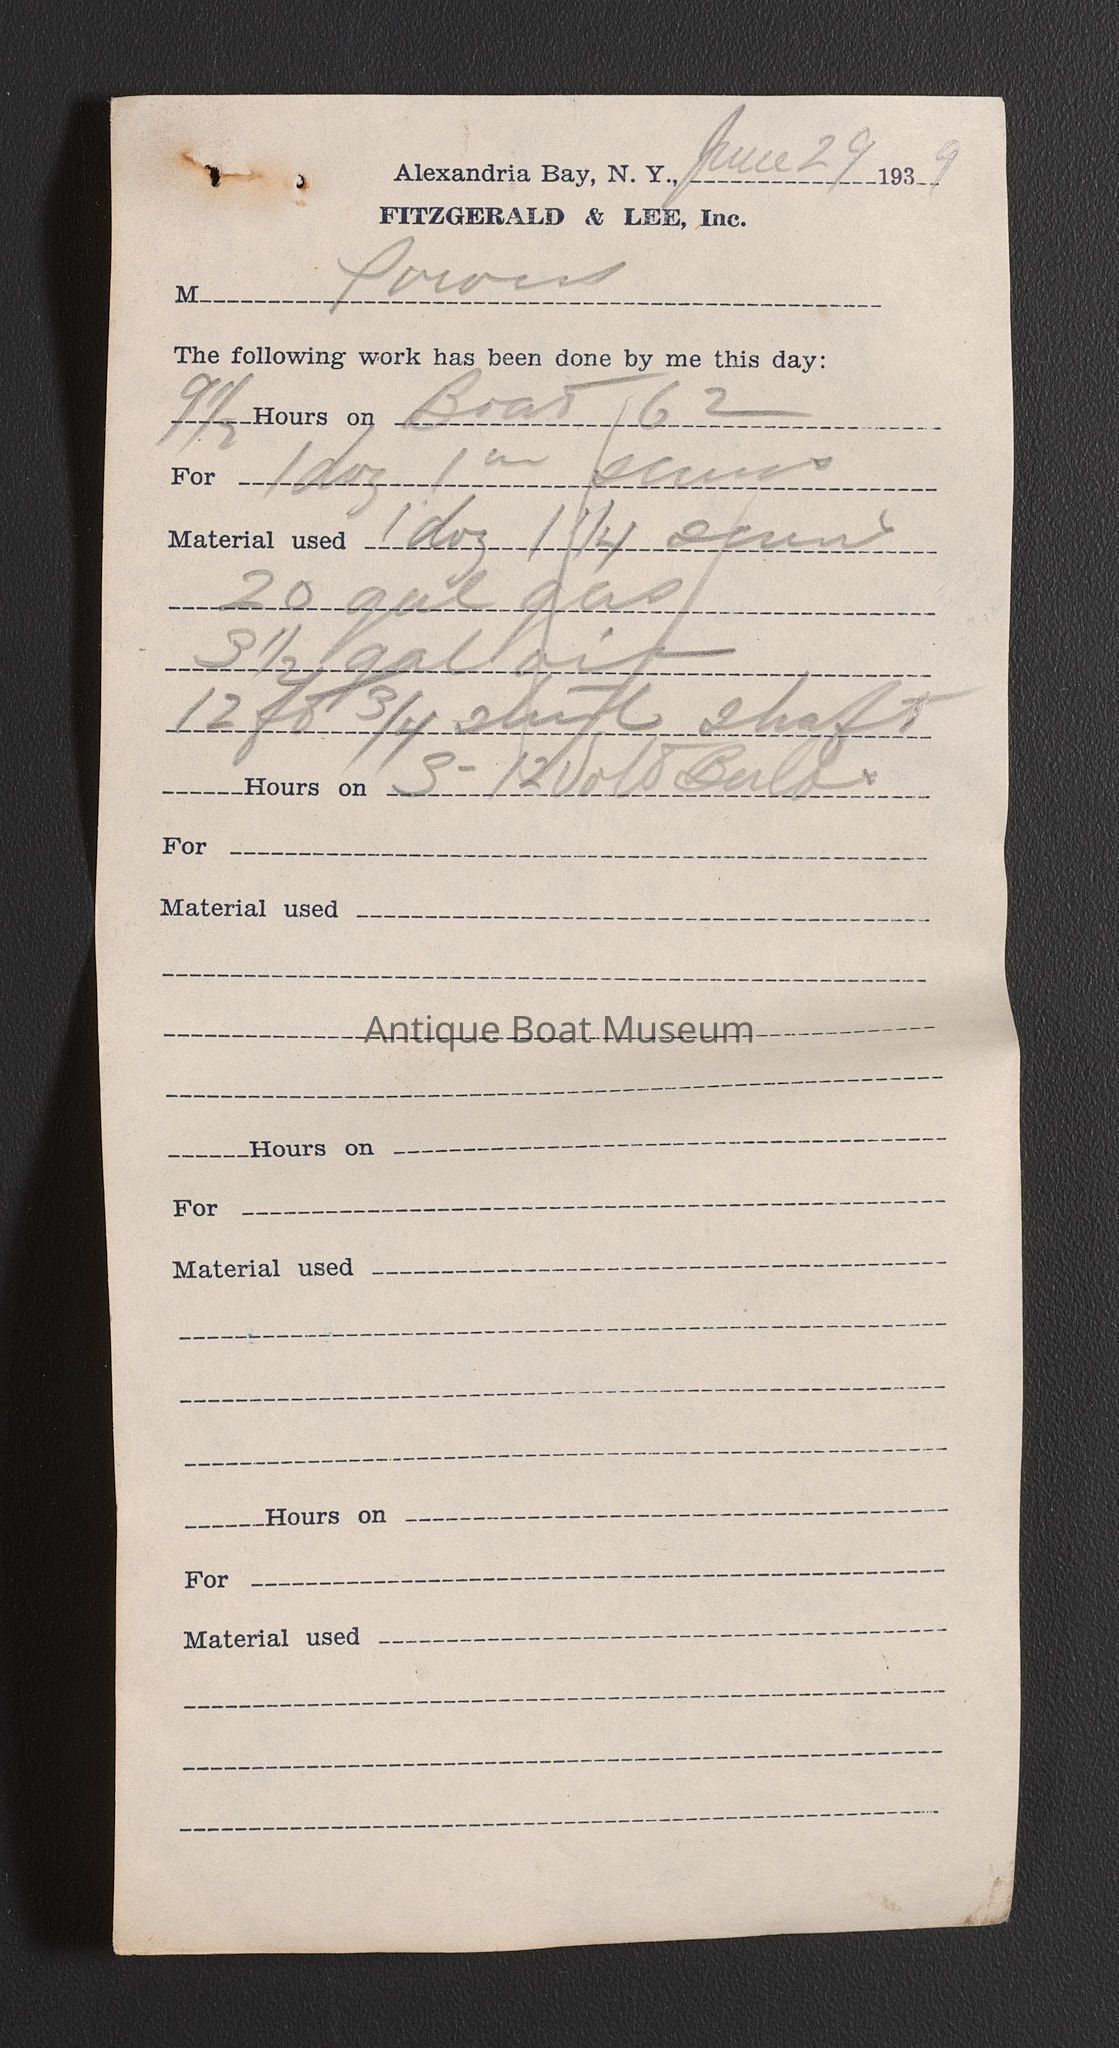 Alexandria Bay, N. Y., June 29 1939
FITZGERALD & LEE, Inc.
M Powers
The following work has been done by me this day:
9 1/2 Hours on Boat 62
For 1 doz 1 in screws
Material used 1 doz 1 1/4 screws
20 gal gas
3 1/2 gal oil
12 ft 3/4 shaft
Hours on 3 - 12 Volt Bulbs
For
Material used
Antique Boat Museum
Hours on
For
Material used
Hours on
For
Material used